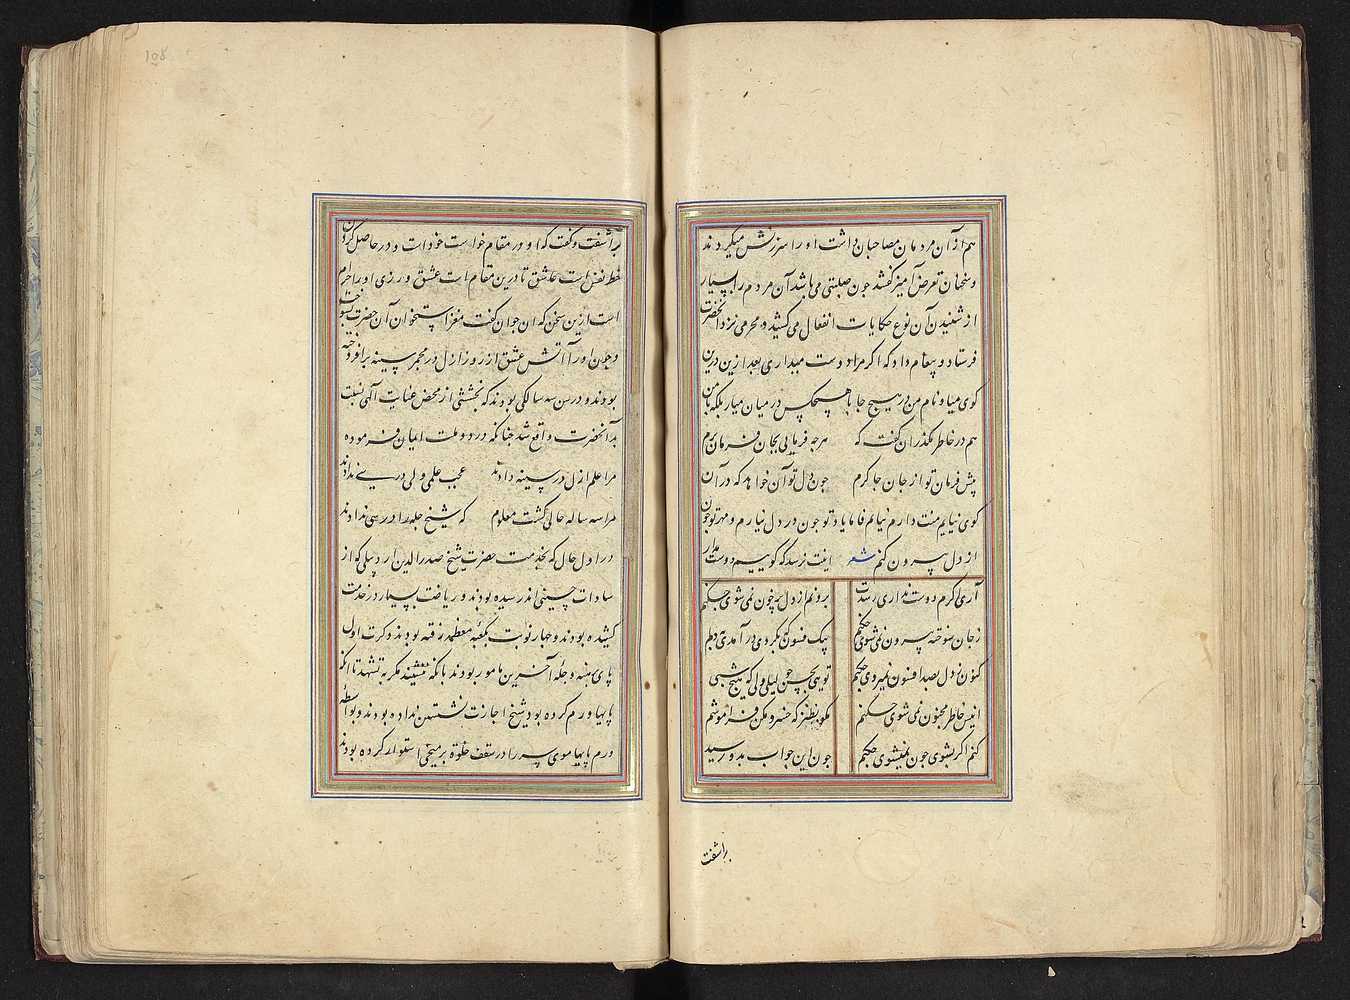 هم از آن مردمان مصاحبان داشت او را سرزنش میکردند
و سخنان تعرض آمیز گفتند چون صلبتی می باشد آن مردم را بسیار
از شنیدن آن نوع حکایات انفعال می کشید و محرمی نزد آنحضرت
فرستاد و پیغام داد که اگر مرا دوست میداری بعد ازین درین
کوی میا و نام من در هیچ جا با هیچکس در میان میار بلکه نام من
هم در خاطر مگذران گفت که هرچه فرمایی بجان فرمان برم
پیش فرمان تو از جان جا کرم چون دل تو آن خواهد که در آن
کوی نیایم منت دارم نیایم فاما یاد تو چون در دل نیارم و مهر تو چون
از دل بیرون کنم شعر اینت نرسد که گوییم دوست مدار
آری گرم دوست نداری رسدت برونم از دل پرخون نمی شوی چکنم
ز جان سوخته بیرون نمی شوی چکنم بیک فسون که بکردی در آمدی بدلم
کنون ز دل بصد افسون نمیروی چکنم تویی بحسن چو لیلی ولی که هیچ شبی
انیس خاطر مجنون نمی شوی چکنم مگو بطنز که خسرو مکن فراموشم
کنم اگر بشوی چون نمیشوی چکنم چون این جواب بدو رسید
برآشفت
۱۰۵
برآشفت و گفت که او در مقام خواست خود است و در حاصل کردن
حظ نفس است عاشق تا درین مقام است عشق ورزی او را حرام
است ازین سخن که آن جوان گفت مغز استخوان آن حضرت بسوخت
و چون او را آتش عشق از روز ازل در مجمر سینه برافروخته
بودند و در سن سه سالگی بودند که بخششی از محض عنایت الهی نسبت
بدآنحضرت واقع شد چنانکه در دولت ایمان فرموده
مرا علم ازل در سینه دادند عجب علمی ولی درسی ندادند
مرا سه ساله حالی گشت معلوم که شیخ چله را در سی ندادند
در اول حال که بخدمت حضرت شیخ صدرالدین اردبیلی که از
سادات حسینی اند رسیده بودند و ریاضت بسیار در خدمت
کشیده بودند و چهار نوبت بکعبه معظمه رفته بودند و کرت اول
پای برهنه و چله آخرین مامور بودند بآنکه ننشینند مگر به تشهد تا آنکه
پایها ورم کرده بود شیخ اجازت نشستن نداده بودند و بواسطه
ورم پایها موی سر را در سقف خلوة بر میخی استوار کرده بودند